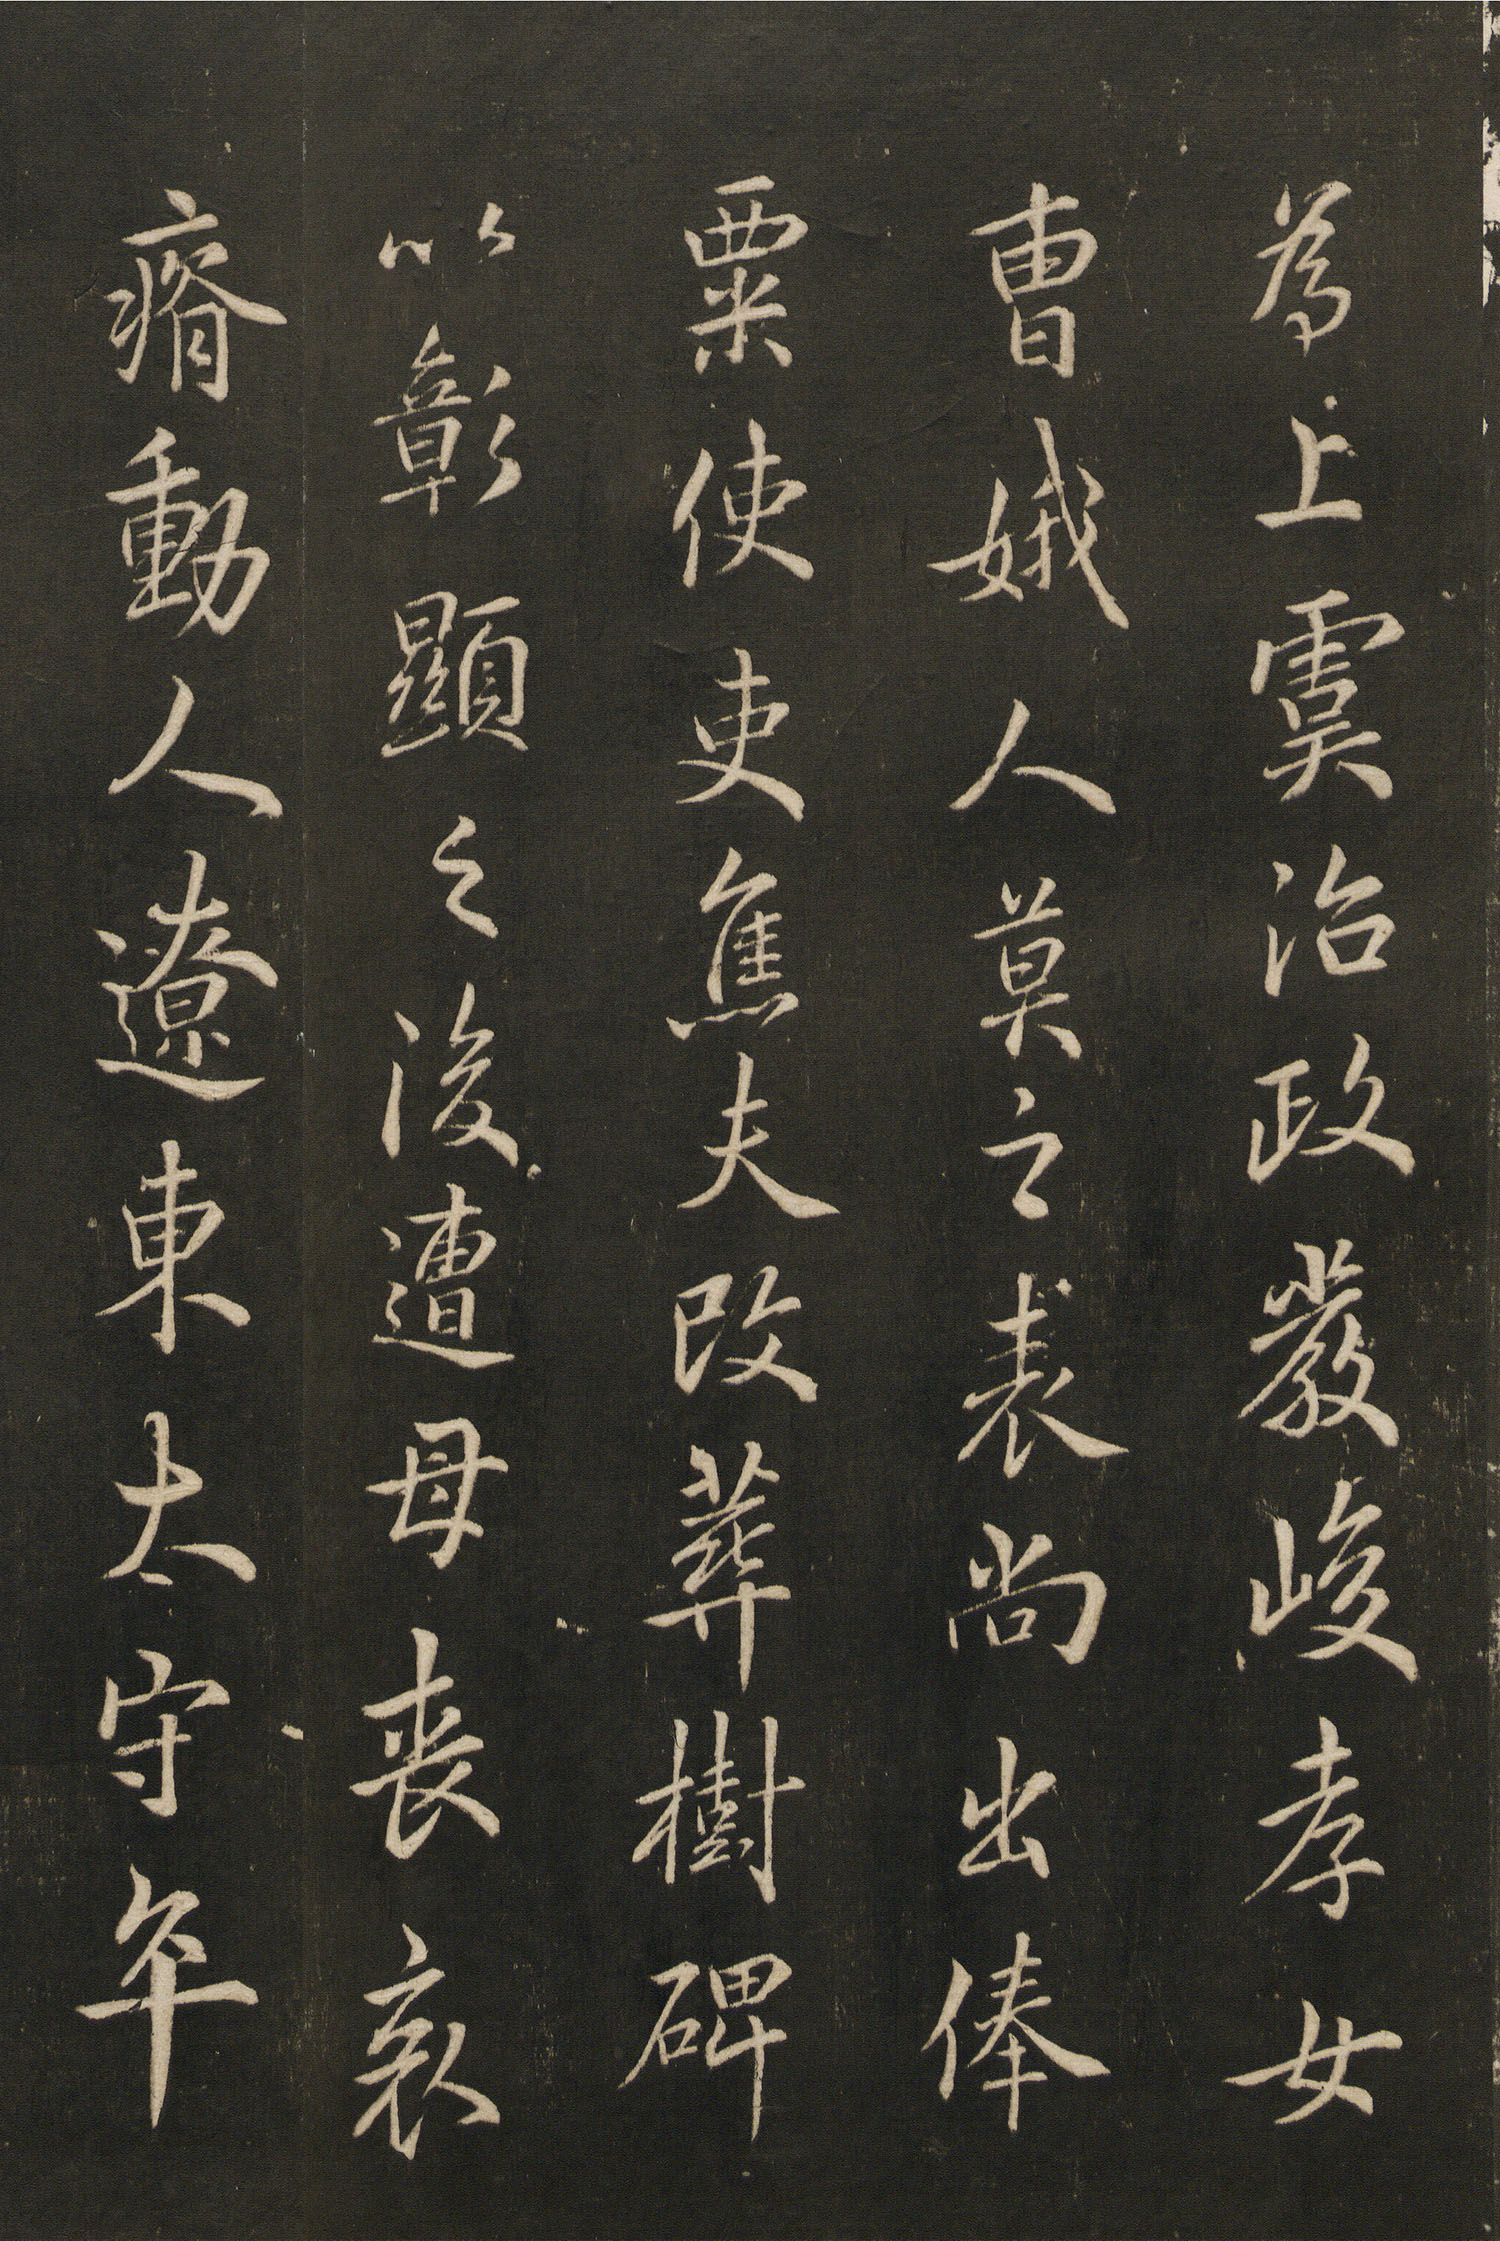 為上虞治政嚴峻孝女
曹娥人莫之表尚出俸
粟使吏焦夫改葬樹碑
以彰顯之後遭母喪哀
瘠動人遼東太守年